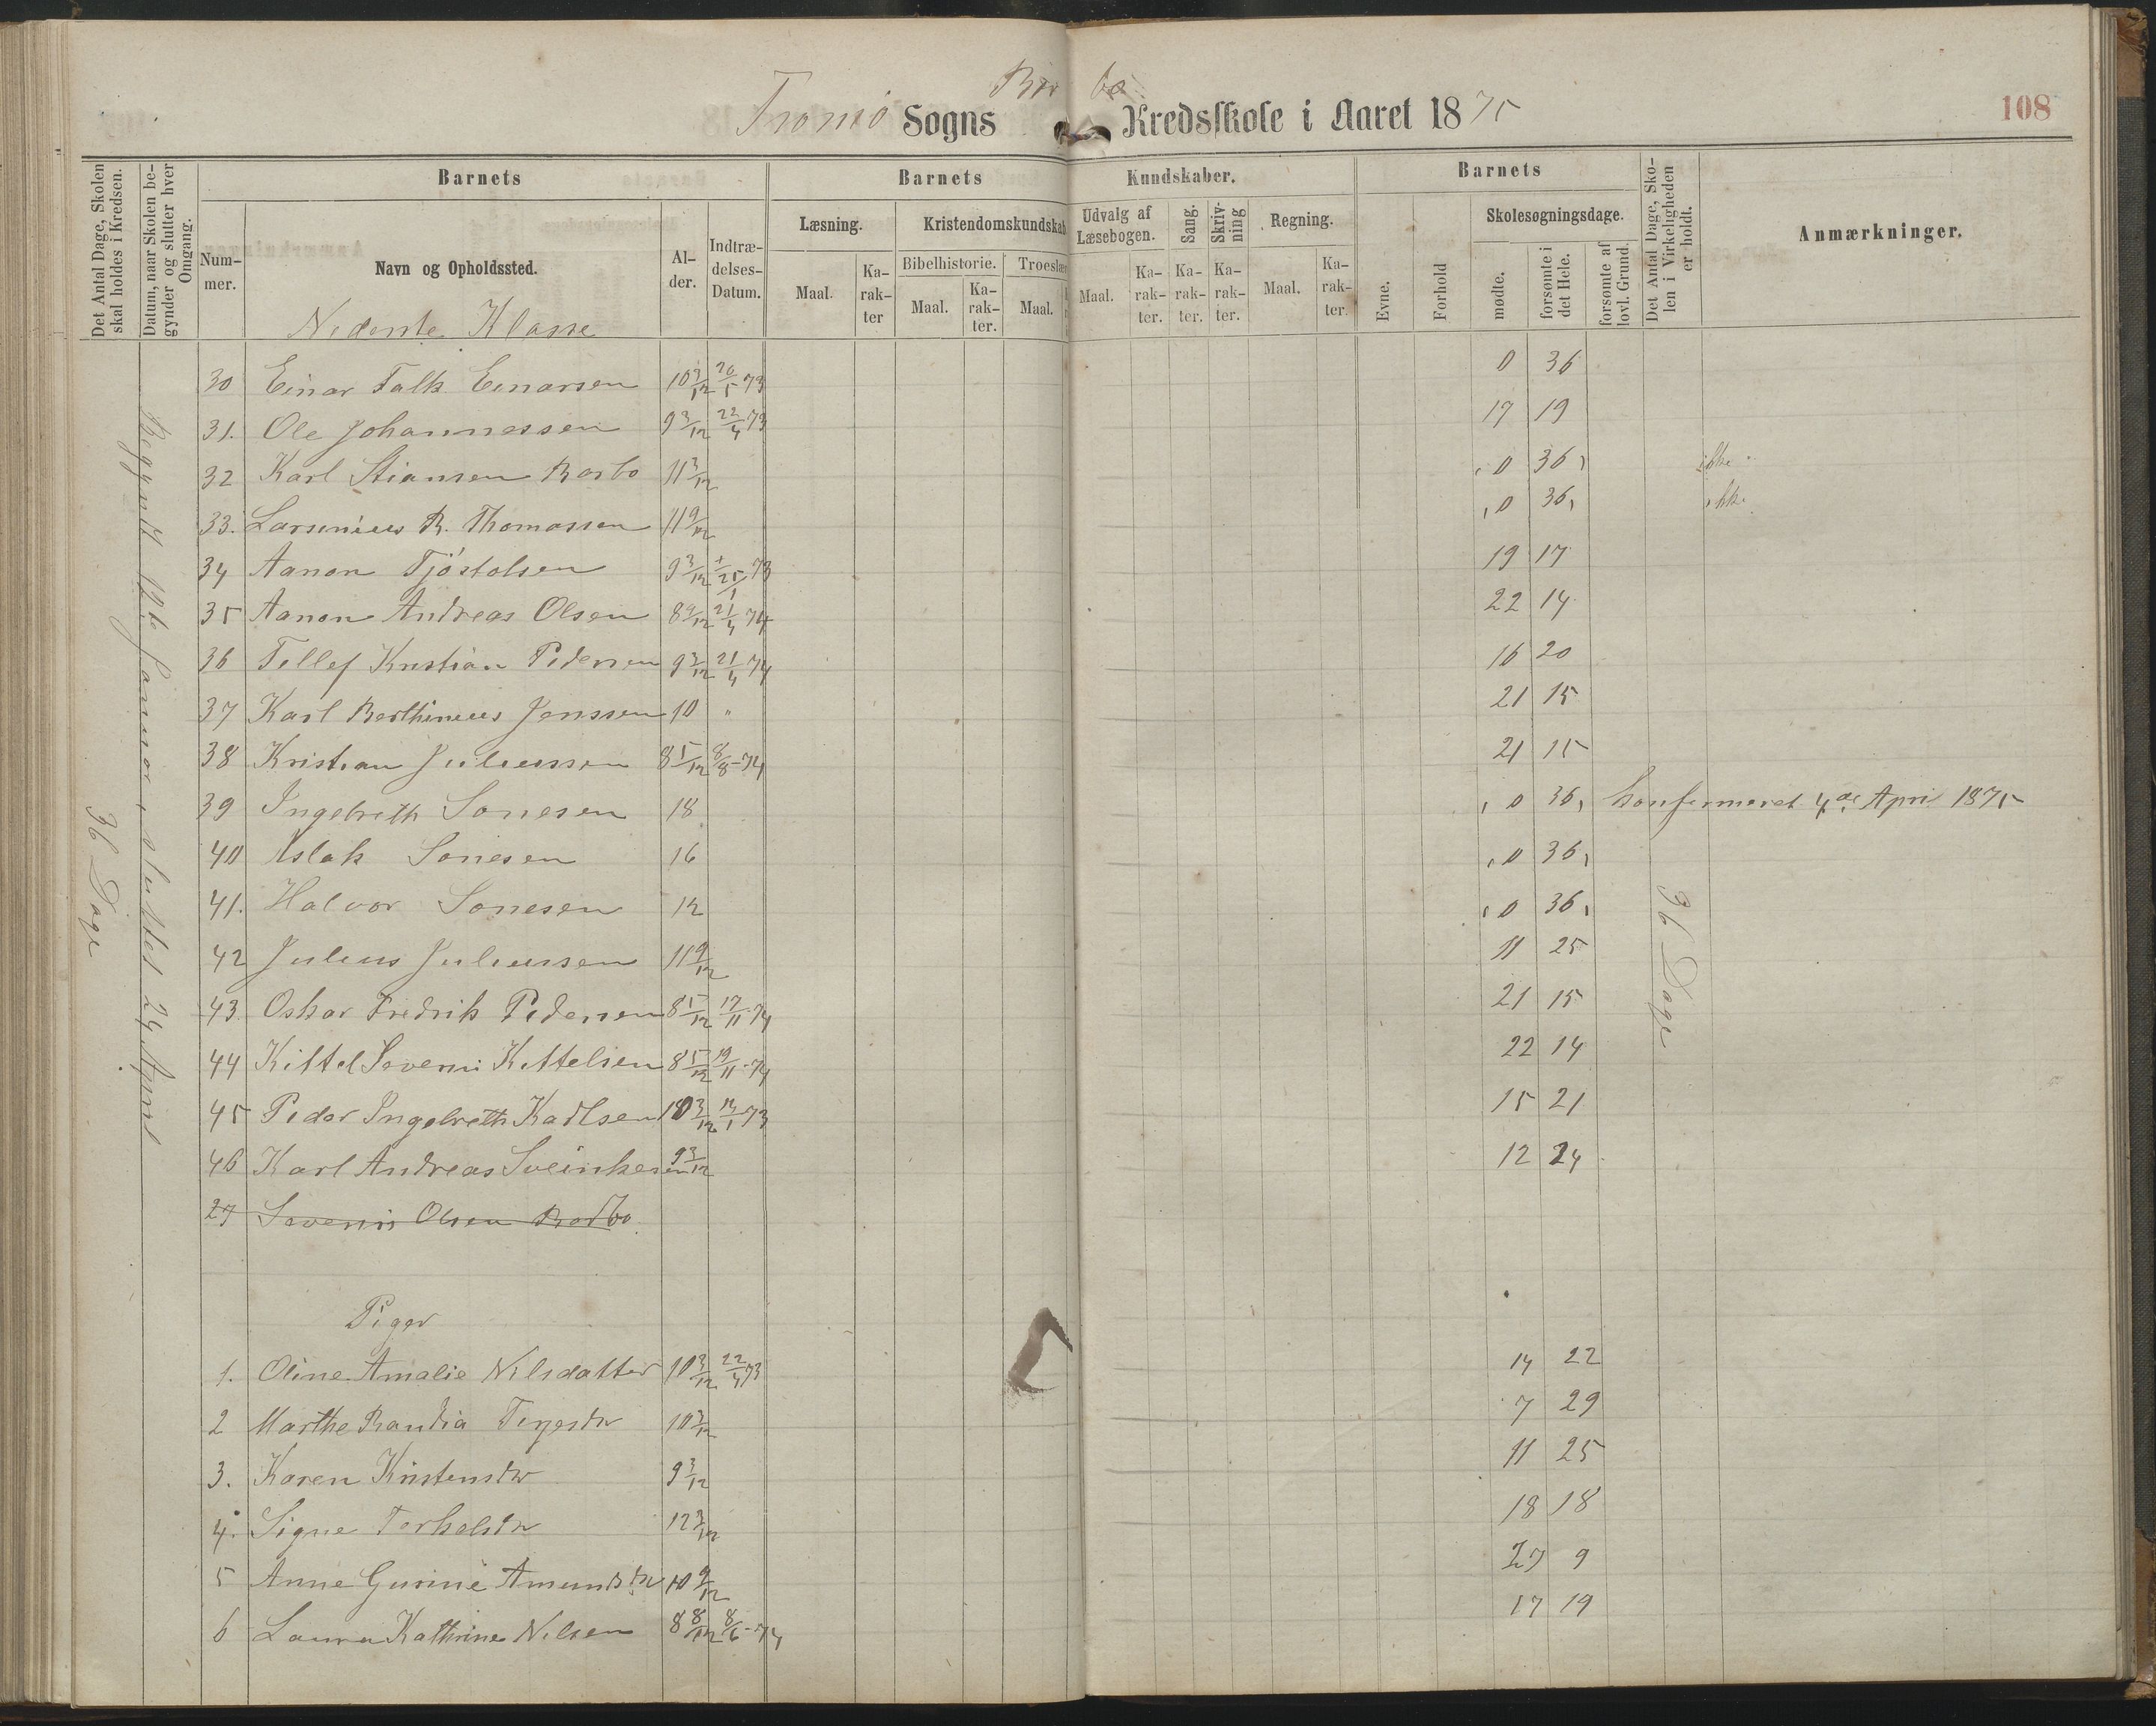 Bor bo
Tromø Sogns Kredsskole i Aaret 1875
108
Det Antal Dage, Skolen skal holdes i Kredsen.
Datum, naar Skolen begynder og slutter hver Omgang.
Barnets
Barnets
Kundskaber.
Barnets
Det Antal Dage, Skolen i Virkeligheden er holdt.
Anmærkninger.
Nummer.
Navn og Opholdssted.
Alder.
Indtrædelses-Datum.
Læsning.
Kristendomskundskab
Udvalg af Læsebogen.
Sang.
Skrivning
Regning.
Evne.
Forhold
Skolesøgningsdage.
Maal.
Karakter
Bibelhistorie.
Troeslær
Maal.
Karakter.
Maal.
Maal.
Karakter.
Karakter.
Karakter.
Maal.
Karakter.
mødte.
forsømte i det Hele.
forsømte af lovl. Grund.
Nederste Klasse
Begyndt 12te Januar, sluttet 24 April
36 Dage
36 Dage
30 Einar Falk Einarsen 10 3/12 20/5 73 0 36
31. Ole Johannessen 9 3/12 22/4 73 17 19
32 Karl Stiansen Barbo 11 3/12 0 36 ikke
33. Larsinius R. Thomassen 11 9/12 0 36 ikke
34 Aanon Tjöstolsen 9 3/12 73 19 17
35 Aanon Andreas Olsen 8 9/12 21/4 74 22 14
36 Tellef Kristian Pedersen 9 3/12 21/4 74 16 20
37 Karl Berthinius Jenssen 10 " 21 15
38 Kristian Juliussen 8 5/12 8/8-74 21 15
39 Ingebreth Sonesen 18 0 36 konfirmeret 4de April 1875
40 Aslak Sonesen 16 0 36
41. Halvor Sonesen 12 0 36
42 Julius Juliussen 11 9/12 11 25
43 Oskar Fredrik Pedersen 8 5/12 17/11-74 21 15
44 Kittel Severin Kittelsen 8 5/12 19/11-74 22 14
45 Peder Ingebreth Karlsen 10 3/12 13/1-73 15 21
46 Karl Andreas Sveinkesen 9 3/12 12 24
27 Severin Olsen Barbo
Piger
1. Oline Amalie Nilsdatter 10 3/12 22/4 73 14 22
2 Marthe Randia Terjesdr 10 3/12 7 29
3. Karen Kristensdr 9 3/12 11 25
4. Signe Terkelsdr 12 3/12 18 18
5 Anne Gurine Amundsdr 10 9/12 27 9
6 Laura Kathrine Nilsen 8 8/12 8/6-74 17 19